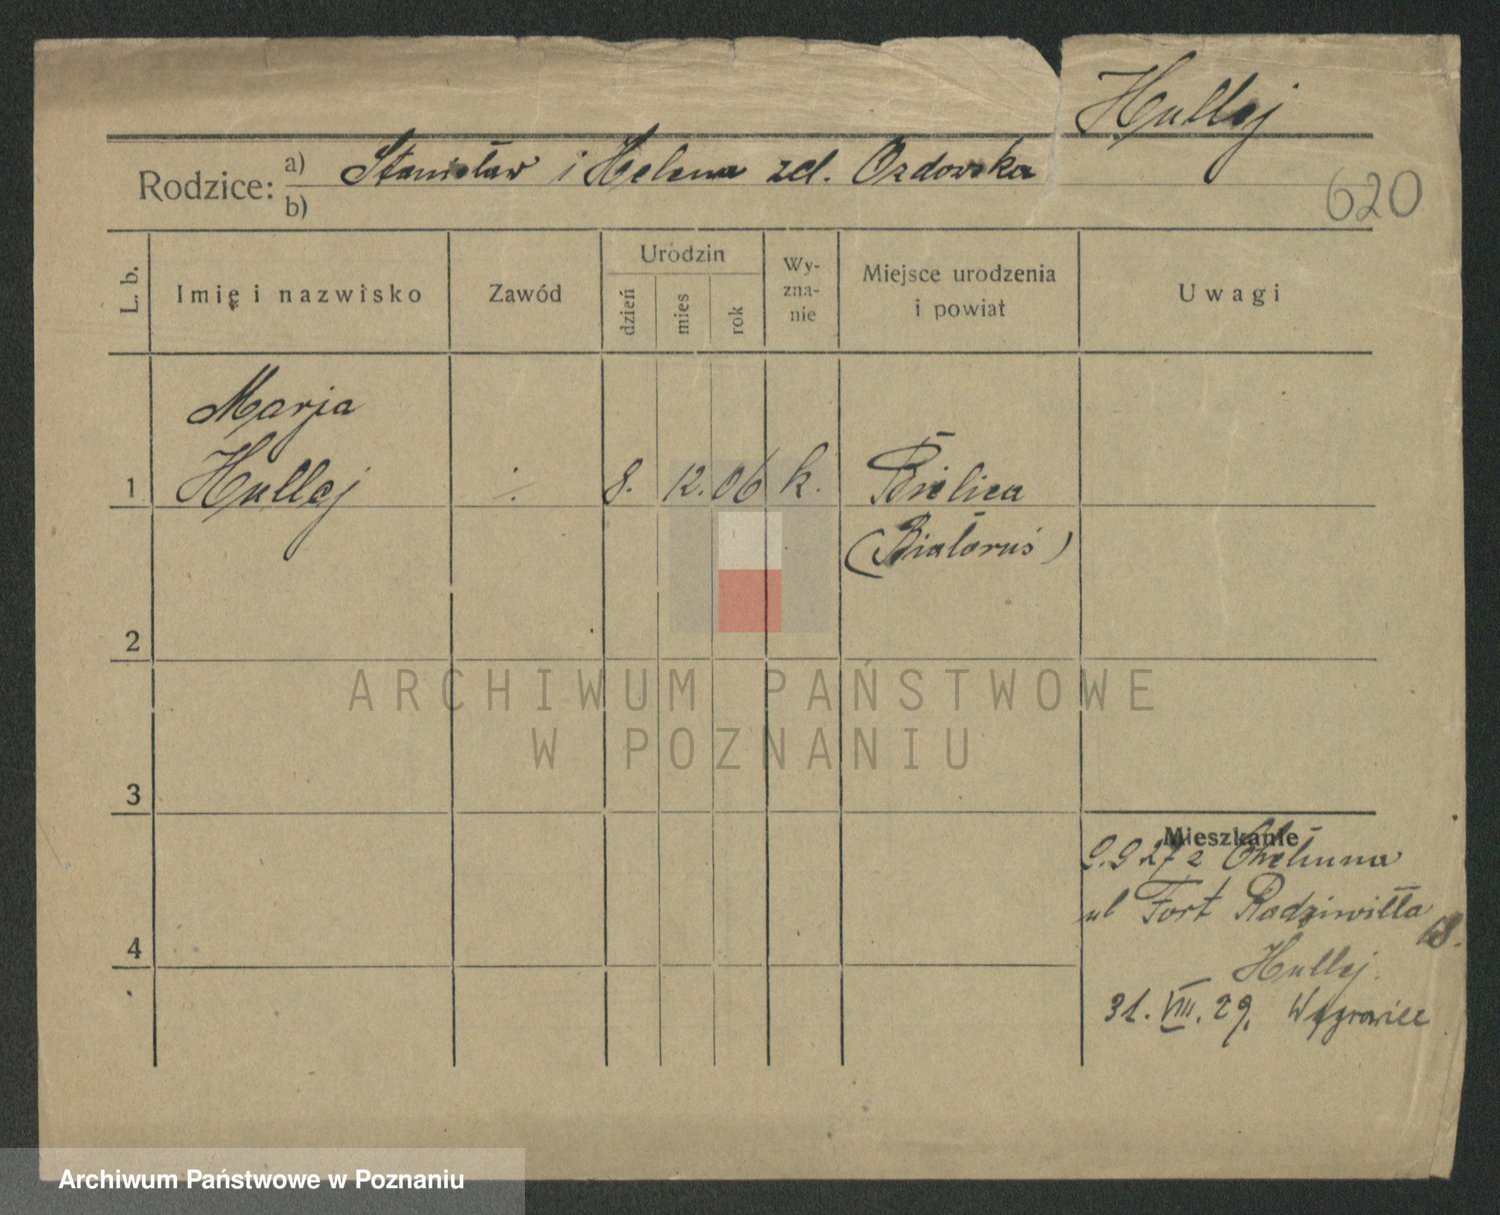 Hullej
Rodzice: a) Stanisław i Helena zd. Ozdowska
b)
620
L. b.
Imię i nazwisko
Zawód
Urodzin
dzień
mies
rok
Wy-
zna-
nie
Miejsce urodzenia
i powiat
Uwagi
Marja
1 Hullej 8. 12. 06 k. Bielica
(Białoruś)
2
3
4
Mieszkanie
9.9 27 z Chełmna
ul Fort Radziwiłła
Hullej.
31. VIII. 29. Wągrowiec
ARCHIWUM PAŃSTWOWE
W POZNANIU
Archiwum Państwowe w Poznaniu